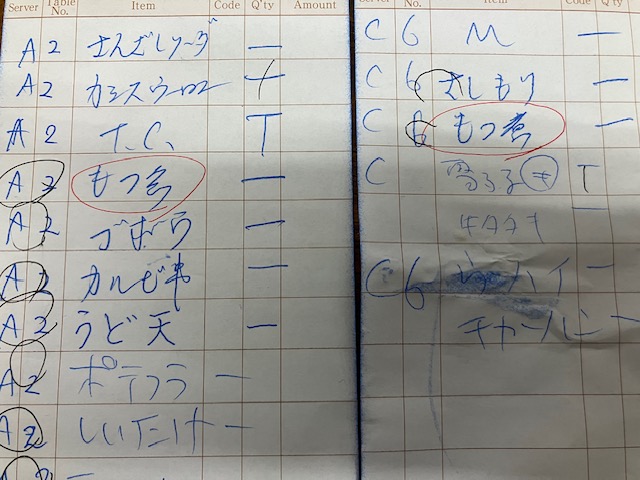 Server Table No. Item Code Q'ty Amount
A2 さんざしソーダ 一
A2 カシスウーロン
A2 T.C. T
A2 もつ煮 一
A2 ゴボウ 一
A2 カルビ串 一
A2 うど天 一
A2 ポテフラ 一
A2 しいたけ 一
Server No. Item Code Q'ty
C6 M 一
C6 さしもり 一
C6 もつ煮 一
C T
C6 ハイ 一
チャーハン 一